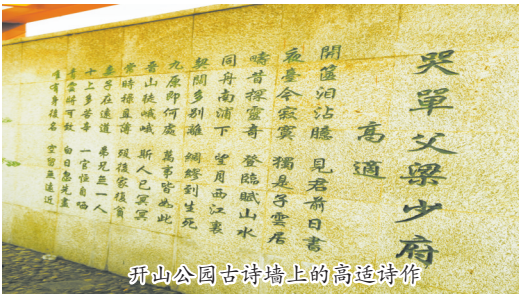 哭單父梁少府
高適
開篋泪沾臆 見君前日書
夜臺今寂寞 獨是子雲居
疇昔探靈奇 登臨賦山水
同舟南浦下 望月西江裏
契闊多別離 綢繆到生死
九原即何處 萬事皆如此
晉山徒峨峨 斯人已冥冥
常時祿且薄 歿後家復貧
妻子在遠道 弟兄無一人
十上多苦辛 一官恒自哂
青雲將可致 白日忽先盡
唯有身後名 空留無遠近
开山公园古诗墙上的高适诗作